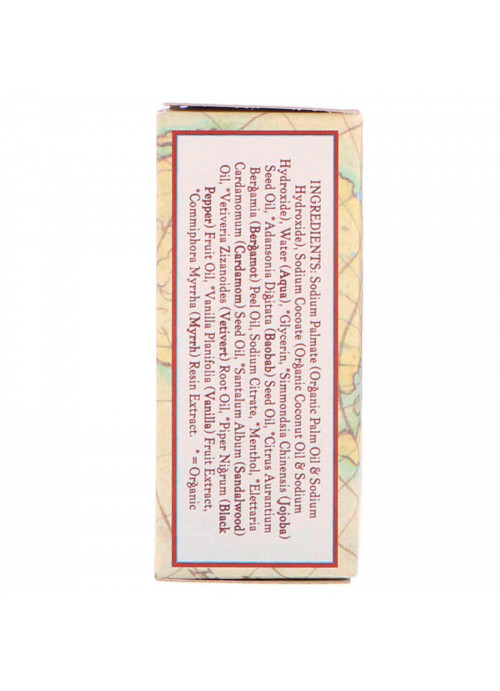 INGREDIENTS: Sodium Palmate (Organic Palm Oil & Sodium
Hydroxide), Sodium Cocoate (Organic Coconut Oil & Sodium
Hydroxide), Water (Aqua), *Glycerin, *Simmondsia Chinensis (Jojoba)
Seed Oil, *Adansonia Digitata (Baobab) Seed Oil, *Citrus Aurantium
Bergamia (Bergamot) Peel Oil, Sodium Citrate, *Menthol, *Elettaria
Cardamomum (Cardamom) Seed Oil, *Santalum Album (Sandalwood)
Oil, *Vetiveria Zizanoides (Vetivert) Root Oil, *Piper Nigrum (Black
Pepper) Fruit Oil, *Vanilla Planifolia (Vanilla) Fruit Extract,
*Commiphora Myrrha (Myrrh) Resin Extract. *= Organic